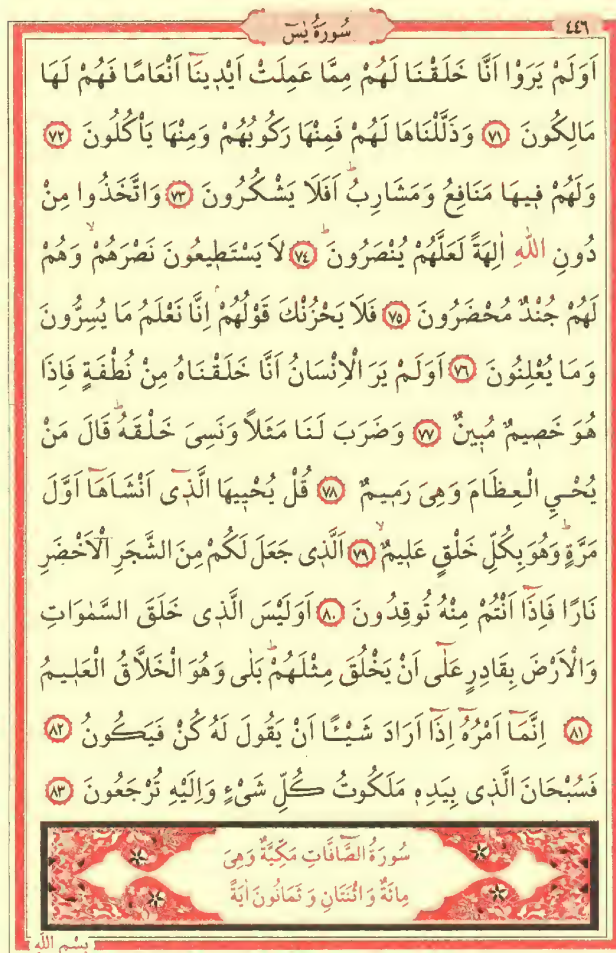 ٤٤٦
سُورَةُ يٰسٓ
اَوَلَمْ يَرَوْا اَنَّا خَلَقْنَا لَهُمْ مِمَّا عَمِلَتْ اَيْدٖينَٓا اَنْعَامًا فَهُمْ لَهَا
مَالِكُونَ ﴿٧١﴾ وَذَلَّلْنَاهَا لَهُمْ فَمِنْهَا رَكُوبُهُمْ وَمِنْهَا يَأْكُلُونَ ﴿٧٢﴾
وَلَهُمْ فٖيهَا مَنَافِعُ وَمَشَارِبُۜ اَفَلَا يَشْكُرُونَ ﴿٧٣﴾ وَاتَّخَذُوا مِنْ
دُونِ اللّٰهِ اٰلِهَةً لَعَلَّهُمْ يُنْصَرُونَۜ ﴿٧٤﴾ لَا يَسْتَطٖيعُونَ نَصْرَهُمْۙ وَهُمْ
لَهُمْ جُنْدٌ مُحْضَرُونَ ﴿٧٥﴾ فَلَا يَحْزُنْكَ قَوْلُهُمْۢ اِنَّا نَعْلَمُ مَا يُسِرُّونَ
وَمَا يُعْلِنُونَ ﴿٧٦﴾ اَوَلَمْ يَرَ الْاِنْسَانُ اَنَّا خَلَقْنَاهُ مِنْ نُطْفَةٍ فَاِذَا
هُوَ خَصٖيمٌ مُبٖينٌ ﴿٧٧﴾ وَضَرَبَ لَنَا مَثَلاً وَنَسِىَ خَلْقَهُۜ قَالَ مَنْ
يُحْيِ الْعِظَامَ وَهِىَ رَمٖيمٌ ﴿٧٨﴾ قُلْ يُحْيٖيهَا الَّذٖٓى اَنْشَاَهَٓا اَوَّلَ
مَرَّةٍۜ وَهُوَ بِكُلِّ خَلْقٍ عَلٖيمٌۙ ﴿٧٩﴾ اَلَّذٖى جَعَلَ لَكُمْ مِنَ الشَّجَرِ الْاَخْضَرِ
نَارًا فَاِذَٓا اَنْتُمْ مِنْهُ تُوقِدُونَ ﴿٨٠﴾ اَوَلَيْسَ الَّذٖى خَلَقَ السَّمٰوَاتِ
وَالْاَرْضَ بِقَادِرٍ عَلٰٓى اَنْ يَخْلُقَ مِثْلَهُمْۜ بَلٰى وَهُوَ الْخَلَّاقُ الْعَلٖيمُ
﴿٨١﴾ اِنَّمَٓا اَمْرُهُٓ اِذَٓا اَرَادَ شَيْـًٔا اَنْ يَقُولَ لَهُ كُنْ فَيَكُونُ ﴿٨٢﴾
فَسُبْحَانَ الَّذٖى بِيَدِهٖ مَلَكُوتُ كُلِّ شَىْءٍ وَاِلَيْهِ تُرْجَعُونَ ﴿٨٣﴾
سُورَةُ الصَّٓافَّاتِ مَكِّيَّةٌ وَهِىَ
مِائَةٌ وَاثْنَتَانِ وَثَمَانُونَ اٰيَةً
بِسْمِ اللّٰهِ